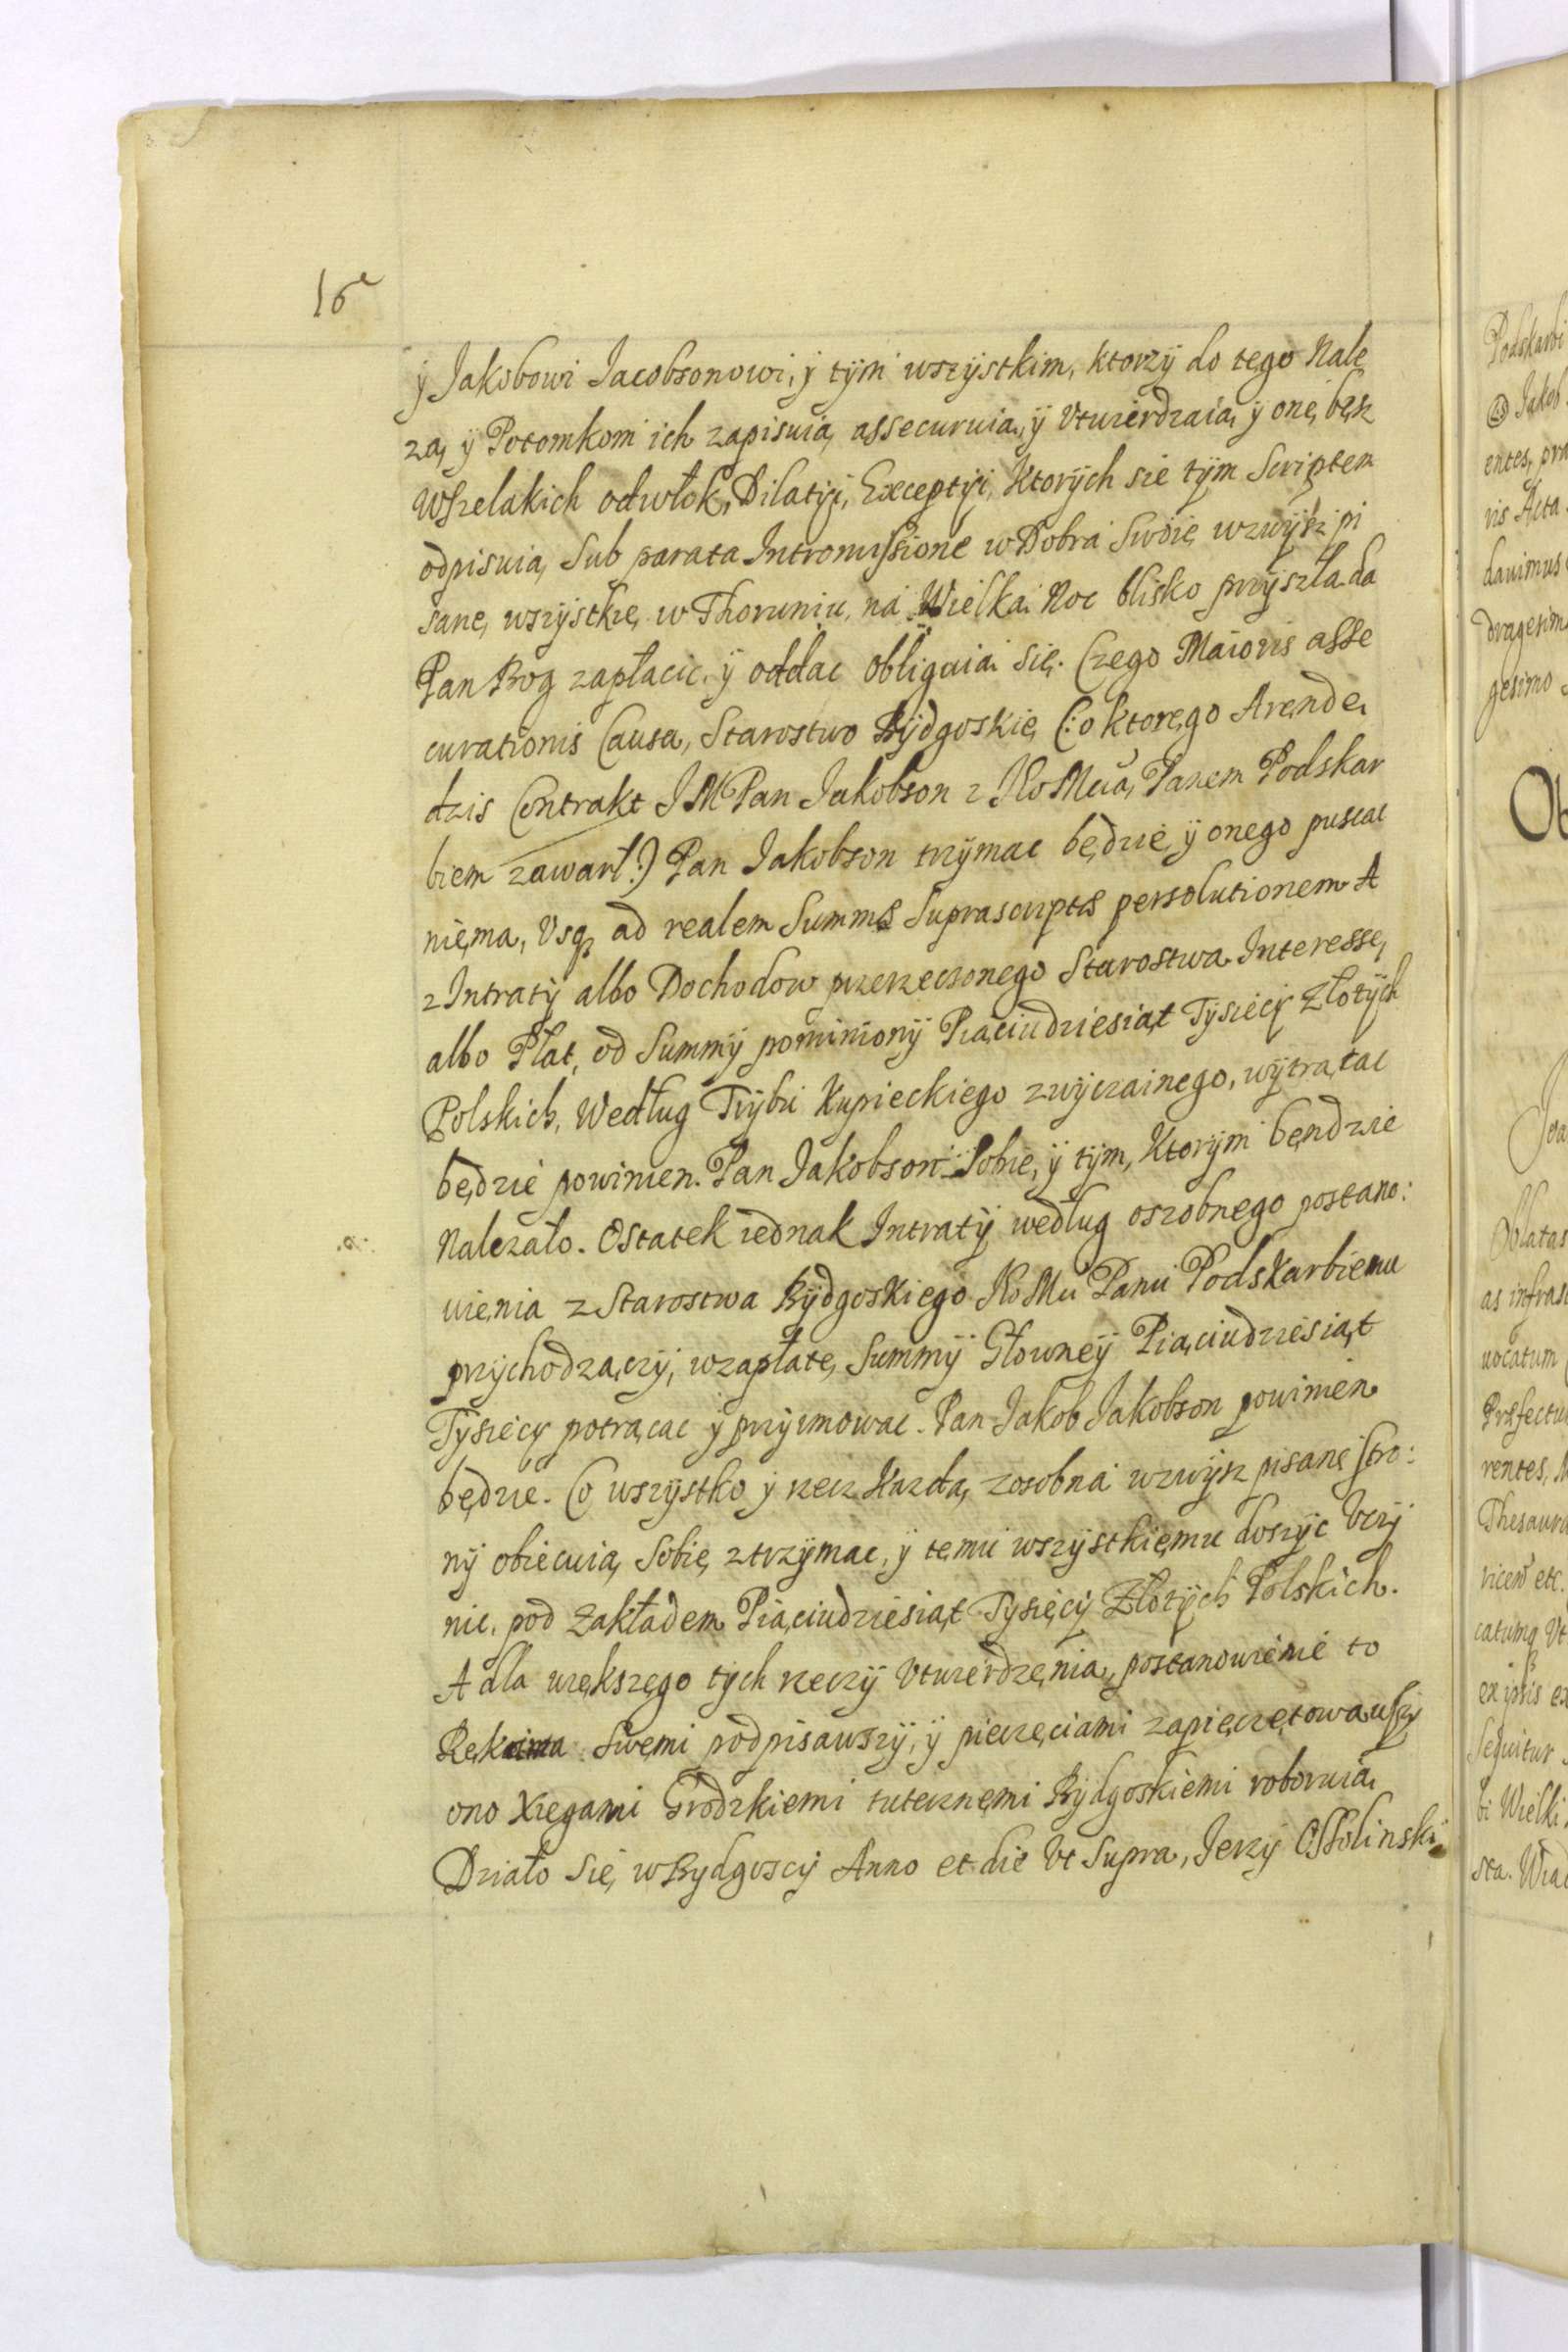 16
ÿ Jakobowi Jacobsonowi, ÿ tÿm wszÿstkim, ktorzÿ do tego Nale
za, ÿ Potomkom ich zapisuią, assecuruią, ÿ Utwierdzaią, ÿ one, besz
Wszelakich odwłok, Dilatÿi, Exceptÿi, Ktorÿch sie tÿm Scriptem
odpisuią, Sub parata Intromissione w Dobra Swoie wzwÿsz pi
sane, wszÿstkie, w Thoruniu, na Wielka Noc blisko przÿszła da
Pan Bog zapłacic, ÿ oddac obliguią się. Czego Maioris asse
curationis Causa, Starostwo Bÿdgoskie, (: o ktorego Arende,
dzis Contrakt JM Pan Jakobson z JKo Mcią Panem Podskar
biem zawarł :) Pan Jakobson trzÿmac będzie, ÿ onego puscac
niema, Usq ad realem Summæ Suprascriptæ persolutionem A
z Intratÿ albo Dochodow przerzeczonego Starostwa Interesse,
albo Płat, od Summÿ pomi̇nionÿ Piąciudziesiąt Tÿsiecÿ Złotÿch
Polskich, Według Trÿbu Kupieckiego zwÿczainego, wÿtrącac
będzie powinien. Pan Jakobson Sobie, ÿ tÿm, Ktorÿm będzie
Należało. Ostatek iednak Intratÿ według oszobnego postano:
wienia z Starostwa Bÿdgoskiego JKo Mci Panu Podskarbiemu
przÿchodzączÿ, w zapłate, Summÿ Głowneÿ Piąciudziesiąt
Tÿsiecy potrącac ÿ przÿimowac. Pan Jakob Jakobson powinien
będzie. Co wszÿstko ÿ rzecz Kazda, zosobna wzwÿsz pisane Stro:
nÿ obiecuią, Sobie, ztrzÿmac, ÿ temu wszÿstkiemu doszÿc Uczÿ
nic, pod Zakładem Piąciudziesiąt Tysięcÿ Złotÿch Polskich.
A dla większego tÿch rzeczÿ Utwierdzenia, postanowienie to
Rękoma Swemi podpisawszÿ, ÿ pieczęciami zapieczętowawszÿ
ono Xięgami Grodzkiemi tutecznemi Bÿdgoskiemi roboruią
Działo Się, w Bydgosczÿ Anno et die Ut Supra, Jerzÿ Ossolinski
Podskarbi
Jakob
entes, pra
vis Acta
dauimus
dragesim
gesimo
Ob
Oblatas
as infras
uocatum
Præfectu
rentes,
Thesaura
vicen etc.
catumq Ut
ex ipsis ex
Sequitur
bi Wielki
sta. Wiad